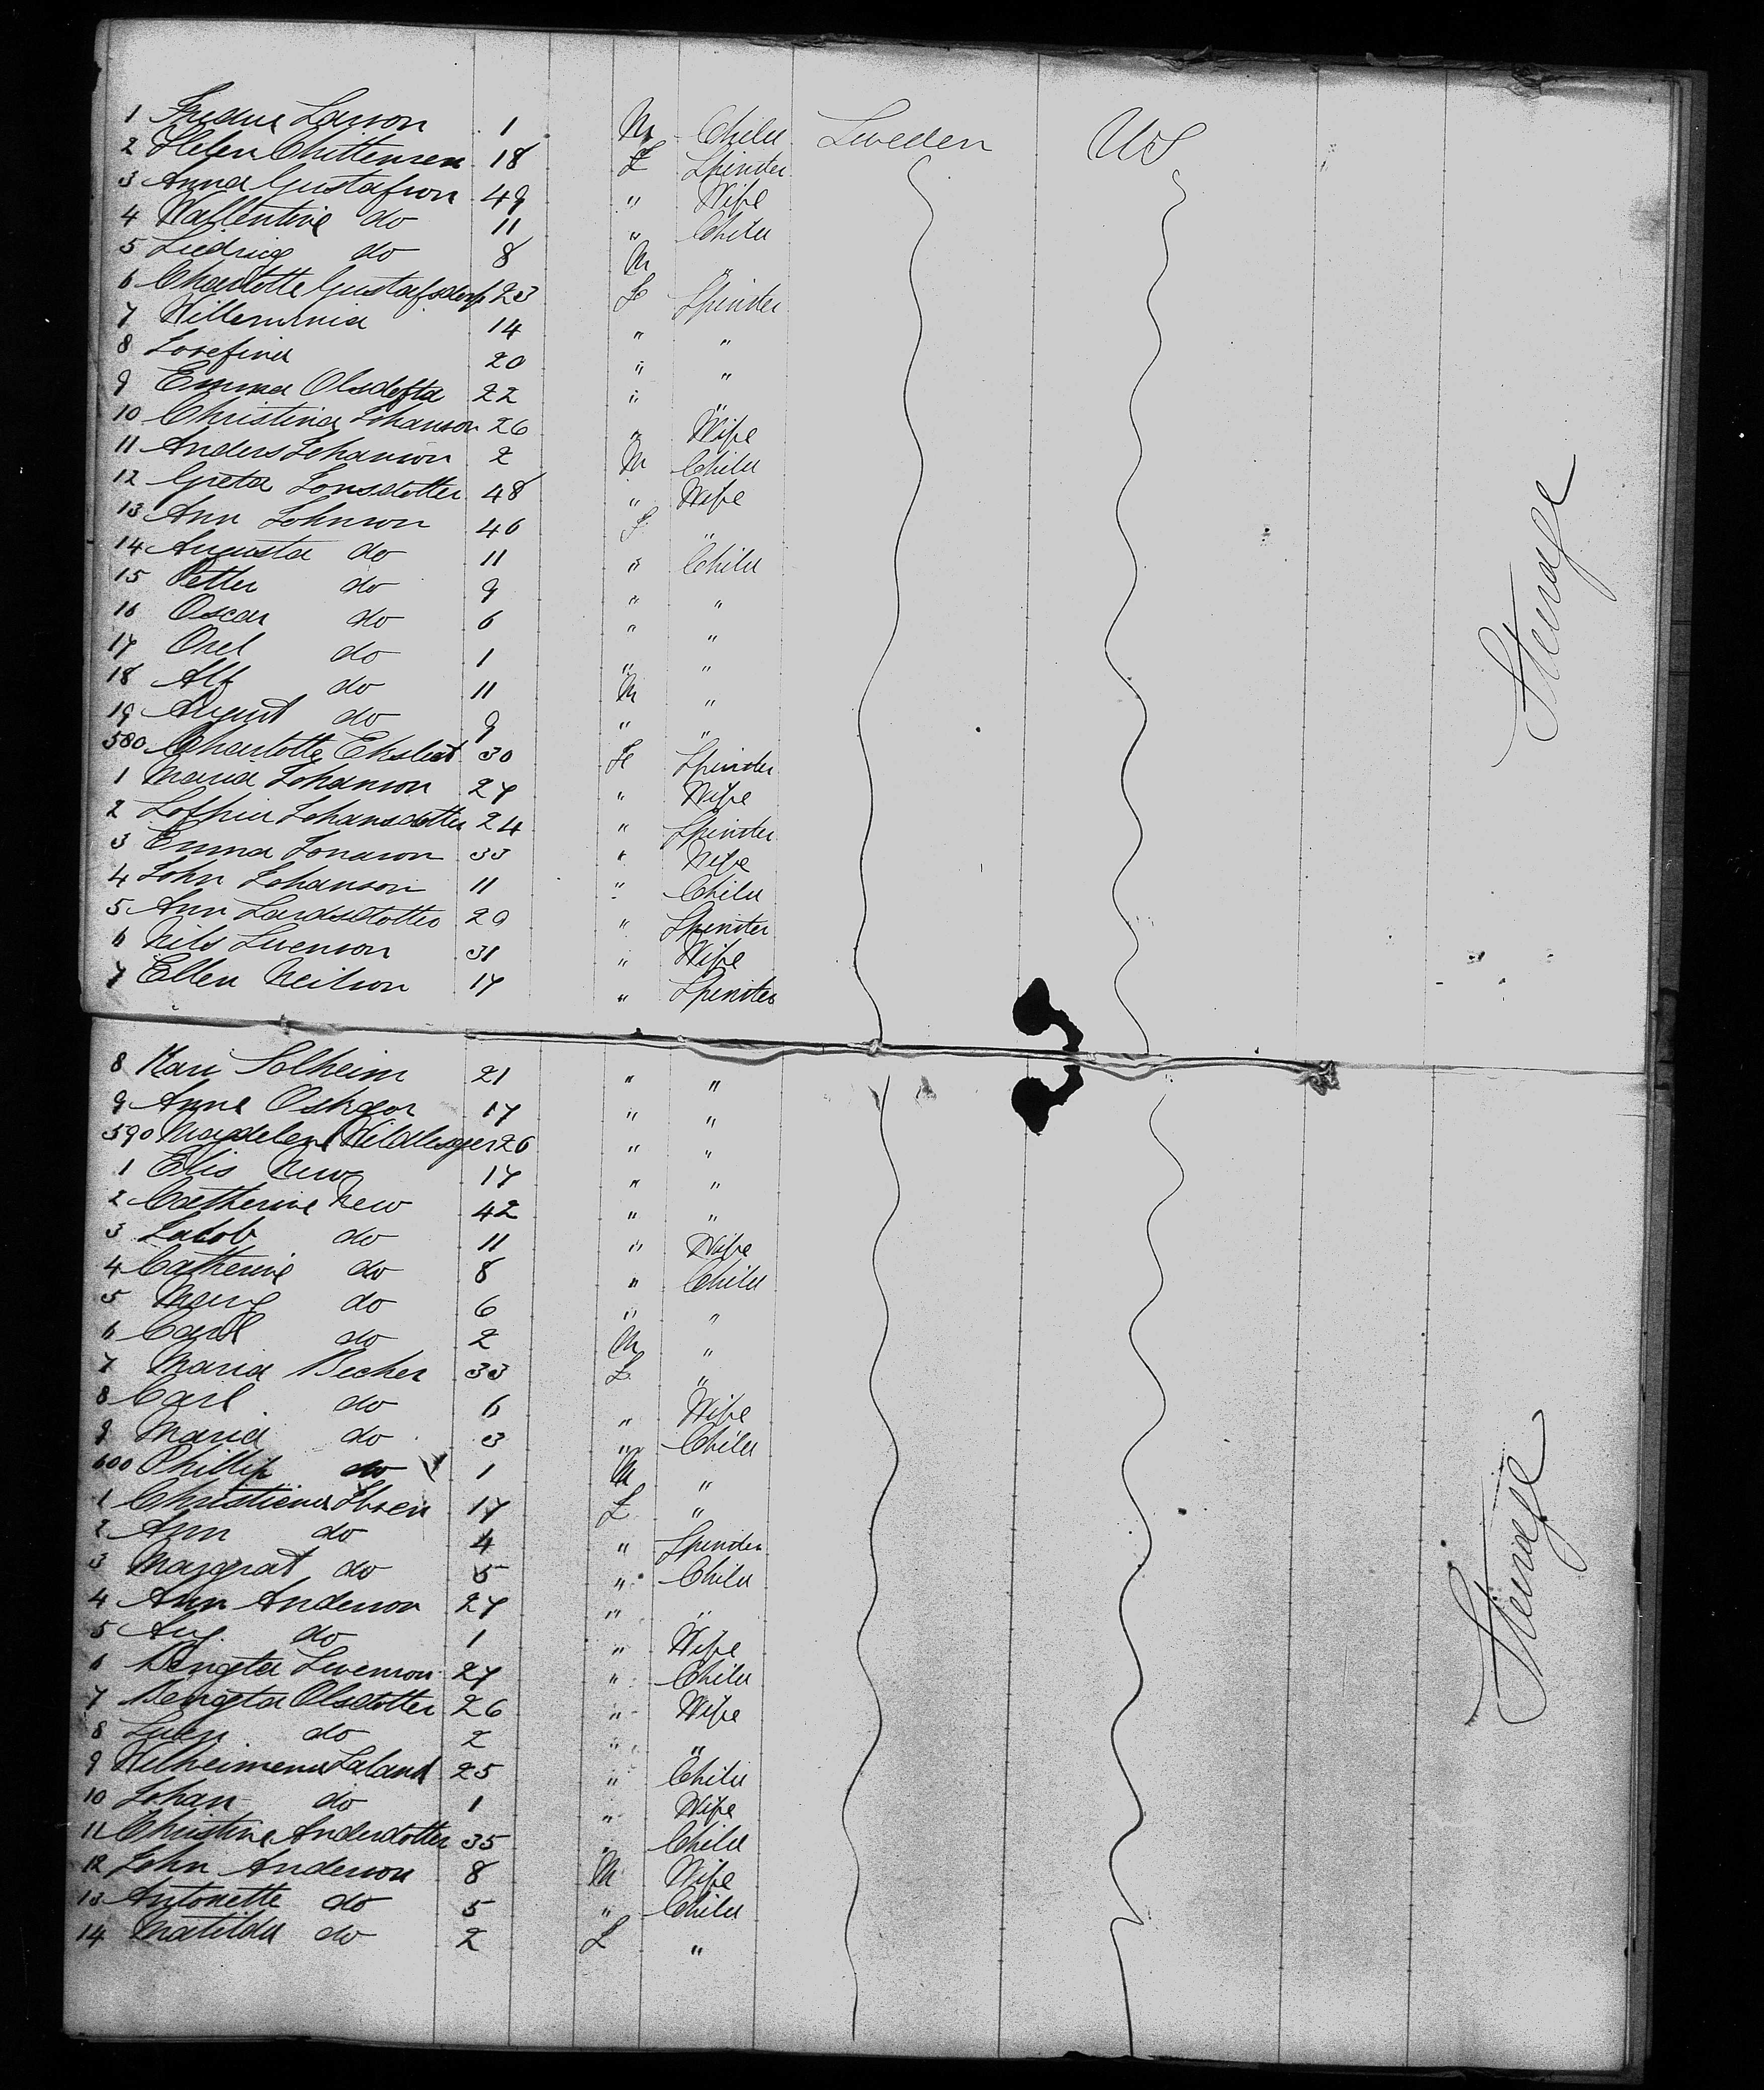 1 Larson 1 M Child Sweden US
2 Helen Chittensen 18 F Spinster
3 Anna Gustafson 49 " Wife
4 Wallentine do 11 " Child
5 Ludvig do 8 M "
6 Charlotte Gustafsdorf 23 F Spinster
7 Willemina 14 " "
8 Josefina 20 " "
9 Emma Olsdotta 22 " "
10 Christina Johanson 26 " Wife
11 Anders Johanson 2 M Child
12 Greta Jonsdotter 48 " Wife
13 Ann Johnson 46 F "
14 Augusta do 11 " Child
15 Petter do 9 " "
16 Oscar do 6 " "
17 do 1 " "
18 Alf do 11 M "
19 August do 9 " "
580 Charlotte 30 Fe Spinster
1 Maria Johanson 27 " Wife
2 Sophia Johansdotter 24 " Spinster
3 Emma Jonason 33 " Wife
4 John Johanson 11 " Child
5 Ann Larsdotter 29 " Spinster
6 Nils Svenson 31 " Wife
7 Ellen Neilson 17 " Spinster
Steerage
8 Kari Solheim 21 " "
9 Anne 17 " "
590 Magdelena 26 " "
1 Elis New 17 " "
2 Catherine New 42 " "
3 Jacob do 11 " Wife
4 Catherine do 8 " Child
5 do 6 " "
6 Carl do 2 M "
7 Maria Becker 33 F "
8 Carl do 6 " Wife
9 Maria do 3 " Child
600 Phillip do 1 M "
1 Christiana Ibsen 17 F "
2 Ann do 4 " Spinster
3 Margrat do 5 " Child
4 Ann Anderson 27 " "
5 Aug. do 1 " Wife
6 Bengta Svenson 27 " Child
7 Bengta Olsdotter 26 " Wife
8 Sven do 2 " "
9 Wilheimena Laland 25 " Child
10 Johan do 1 " Wife
11 Christine Andersdotter 35 " Child
12 John Anderson 8 M Wife
13 Antonette do 5 " Child
14 Matilda do 2 F "
Steerage